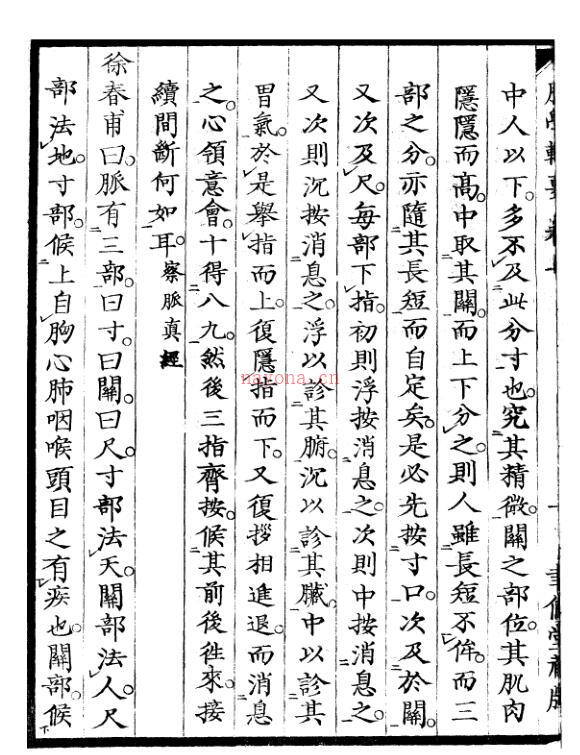 中人以下。多不及此分寸也。究其精微。關之部位。其肌肉
隱隱而高。中取其關。而上下分之。則人雖長短不侔。而三
部之分。亦隨其長短而自定矣。是必先按寸口。次及於關。
又次及尺。每部下指。初則浮按消息之。次則中按消息之。
又次則沉按消息之。浮以診其腑。沉以診其臟。中以診其
胃氣。於是舉指而上。復隱指而下。又復挨相進退。而消息
之。心領意會。十得八九。然後三指齊按。候其前後徃來。接
續間斷何如耳。察脈真經
徐春甫曰。脈有三部。曰寸。曰關。曰尺。寸部法天。關部法人。尺
部法地。寸部。候上自胸心肺咽喉頭目之有疾也。關部。候
nayona.cn